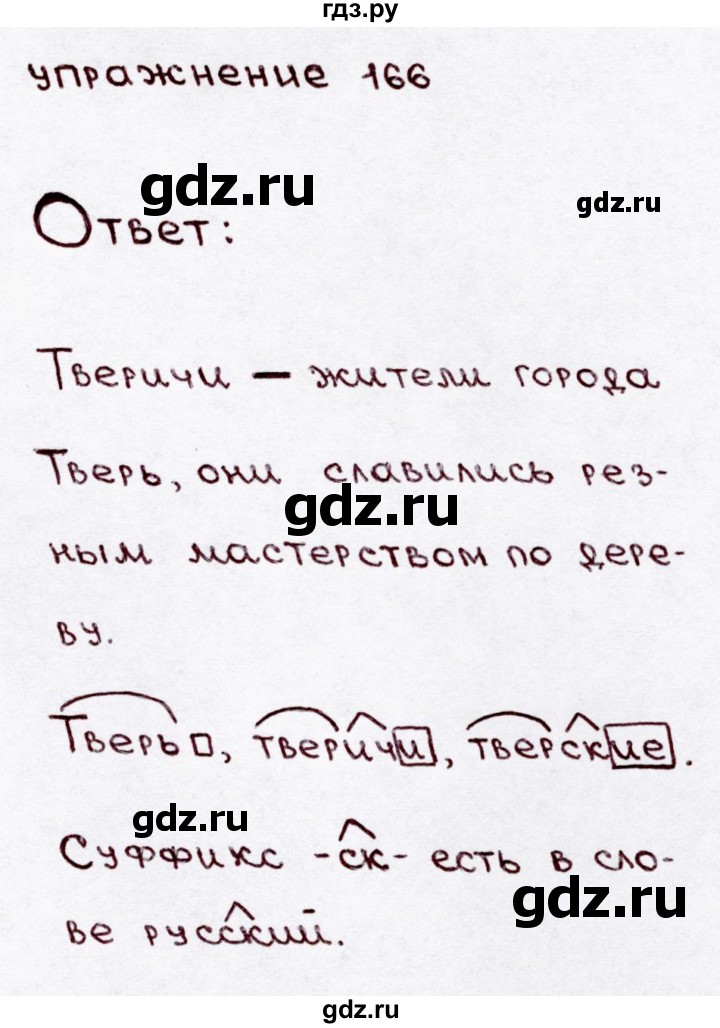 гдз.ру
упражнение 166
gdz.ru
gdz.ru
Ответ:
Тверичи — жители города
Тверь, они славились рез-
gdz.ru
ным мастерством по дере-
ву.
Тверь, тверичи, тверские.
gdz.ru
Суффикс -ск- есть в сло-
gdz.ru
ве русский.
gdz.ru